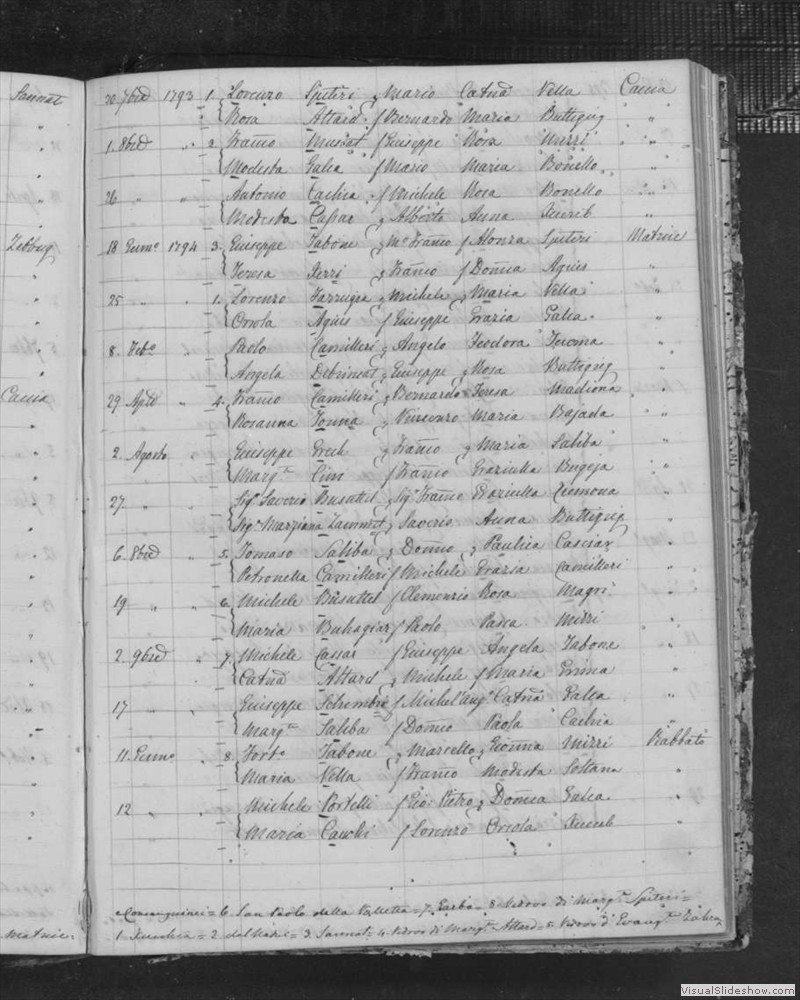 Sannat
Zebbug
Caccia
Matrice
20 7bre 1793 1. Lorenzo Spiteri Mario Catna Vella Caccia
Rosa Attard f Bernardo Maria Buttigieg "
1. 8bre " 2 Franco Muscat f Giuseppe Rosa Mizzi "
Modesta Galea f Mario Maria Bonello "
26 " " Antonio Cachia f Michele Rosa Bonello "
Modesta Cassar Alberto Anna Xerib "
18 Genn° 1794 3. Giuseppe Tabone Mo Franco f Alonza Spiteri Matrice
Teresa Xerri Franco f Domca Agius "
25 " " 1. Lorenzo Farrugia Michele Maria Vella "
Orsola Agius f Giuseppe Grazia Galea "
8. Feb° " Paolo Camilleri Angelo Teodora "
Angela Debrincat Giuseppe Rosa Buttigieg "
29 Aple " 4. Franco Camilleri Bernardo Teresa Madiona "
Rosanna Tonna Vincenzo Maria Bajada "
2 Agosto " Giuseppe Grech Franco Maria Saliba "
Marga Cini f Franco Graziulla Bugeja "
27. " " Sigr Saverio Busuttil Sigr Franco Graziulla Cremona "
Siga Marziana Zammit Saverio Anna Buttigieg "
6. 8bre " 5. Tomaso Saliba Domco Paulica Casciar "
Petronella Camilleri f Michele Grazia Camilleri "
19 " " 6. Michele Busuttil f Clemenzio Rosa Magri "
Maria Buhagiar f Paolo Pasca Mizzi "
2. 9bre " 7. Michele Cassar f Giuseppe Angela Tabone "
Catna Attard Michele f Maria Grima "
17 " " Giuseppe Schembri f Michel'Ang° Catna Galea "
Marga Saliba f Domco Paola Cachia "
11. Genn° " 8. Fort° Tabone Marcello Gionna Mizzi Rabbato
Maria Vella f Franco Modesta Soltana "
12 " " Michele Portelli f Gio: Pietro Domca Galea "
Maria Cauchi f Lorenzo Orsola Xuereb "
Consanguinei = 6. San Paolo della Valletta = 7 Garbo = 8 Vedovo di Marga Spiteri =
1. = 2 = 3 Sannat = 4 Vedovo di Marga Attard = 5 Vedovo d'Evanga
VisualSlideshow.com